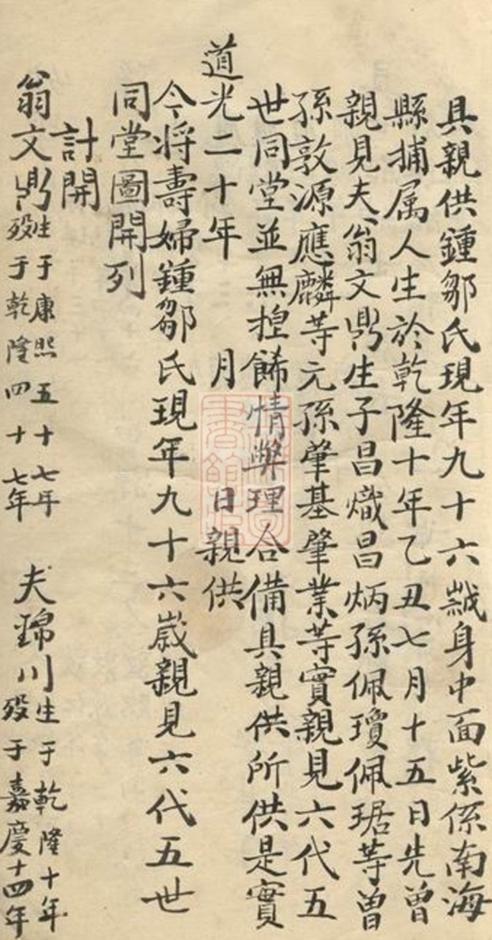 具親供鍾鄒氏現年九十六歲身中面紫係南海
縣捕属人生於乾隆十年乙丑七月十五日先曾
親見夫翁文鼎生子昌熾昌炳孫佩瓊佩琚等曾
孫敦源應麟等元孫肇基肇業等實親見六代五
世同堂並無揑餙情獘理合備具親供所供是實
道光二十年 月 日親供
今将壽婦鍾鄒氏現年九十六歲親見六代五世
同堂圖開列
計開
翁文鼎生于康熙五十七年 夫錦川生于乾隆十年
歿于乾隆四十七年 歿于嘉慶十四年